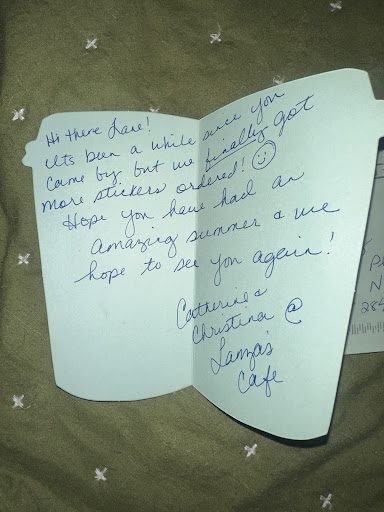 Hi there Lase!
Its been a while since you
came by but we finally got
more stickers ordered!
Hope you have had an
amazing summer & we
hope to see you again!
Catherine &
Christina @
Lanza's
Cafe
P
N
284